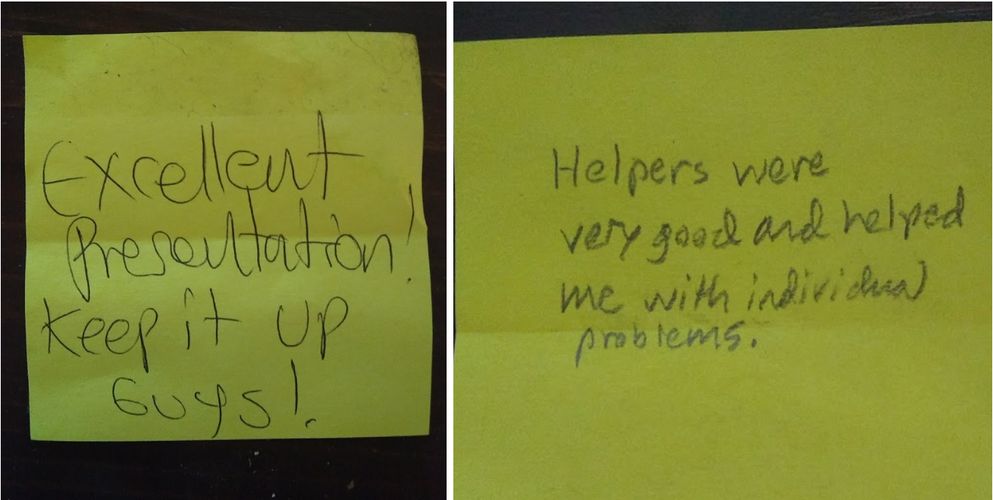 Excellent
Presentation!
Keep it up
Guys!
Helpers were
very good and helped
me with individual
problems.